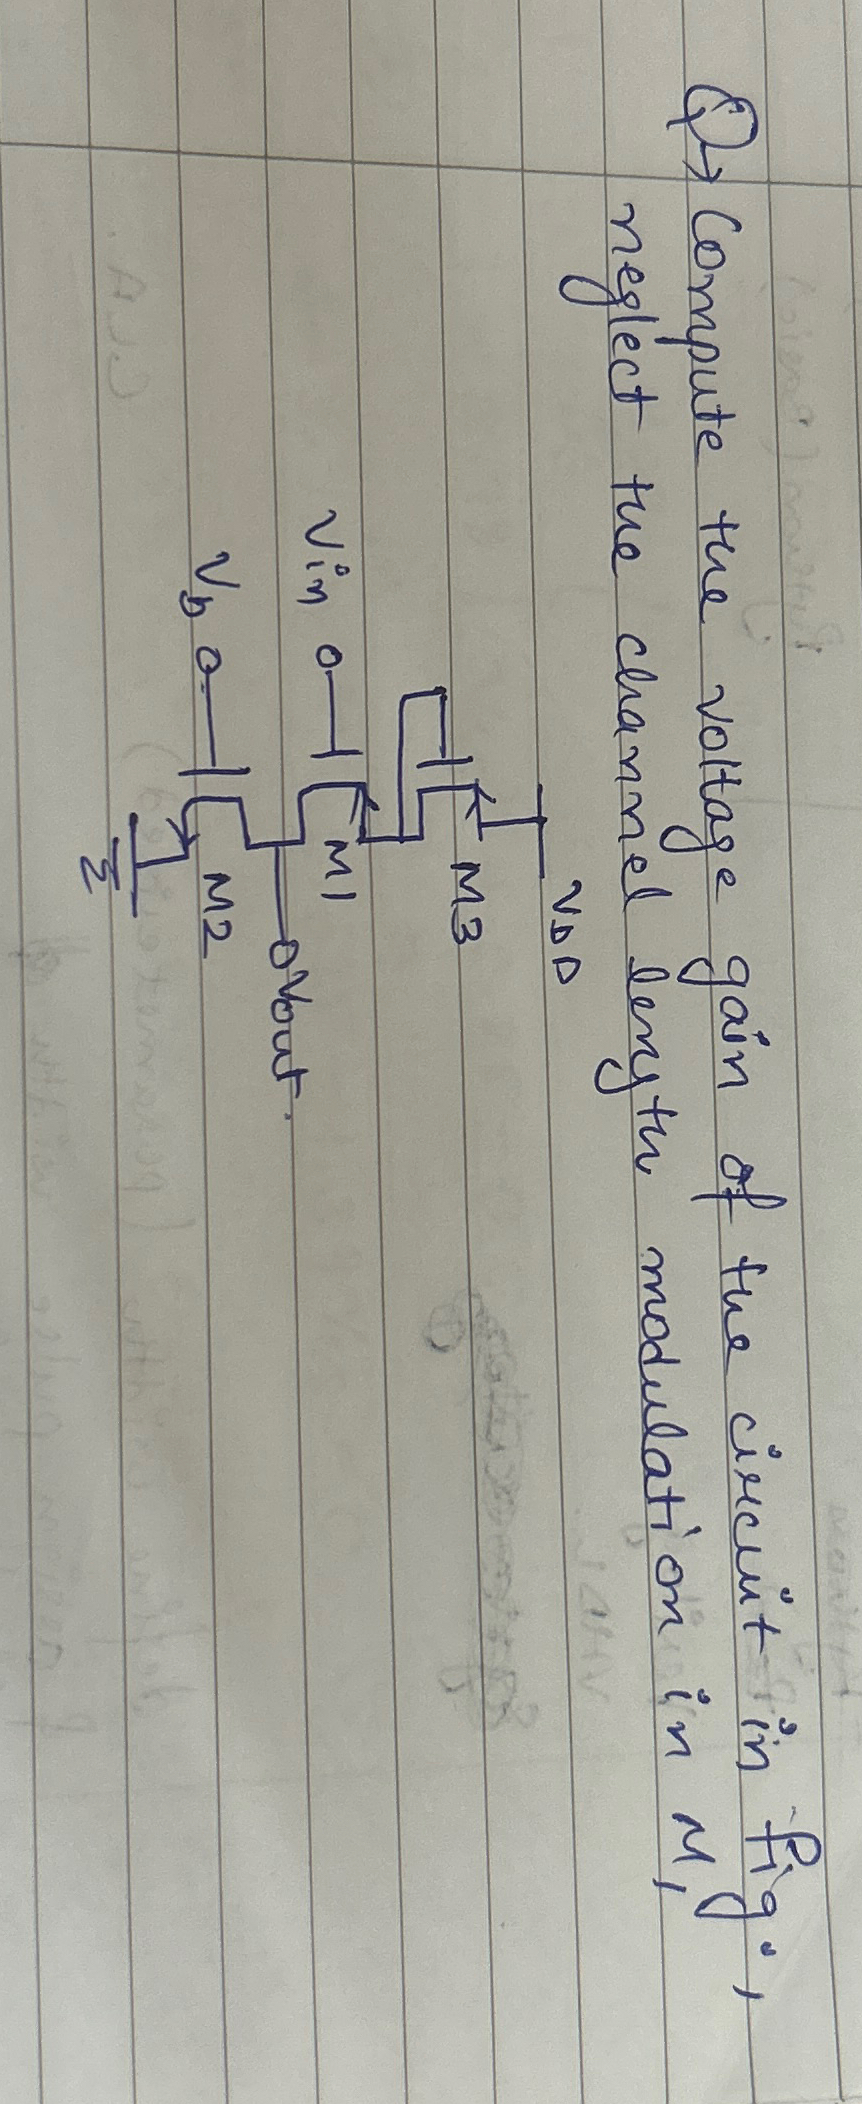 Q→ Compute the voltage gain of the circuit in fig.,
neglect the channel length modulation in M1
VDD
M3
Vin
M1
Vout.
Vb
M2